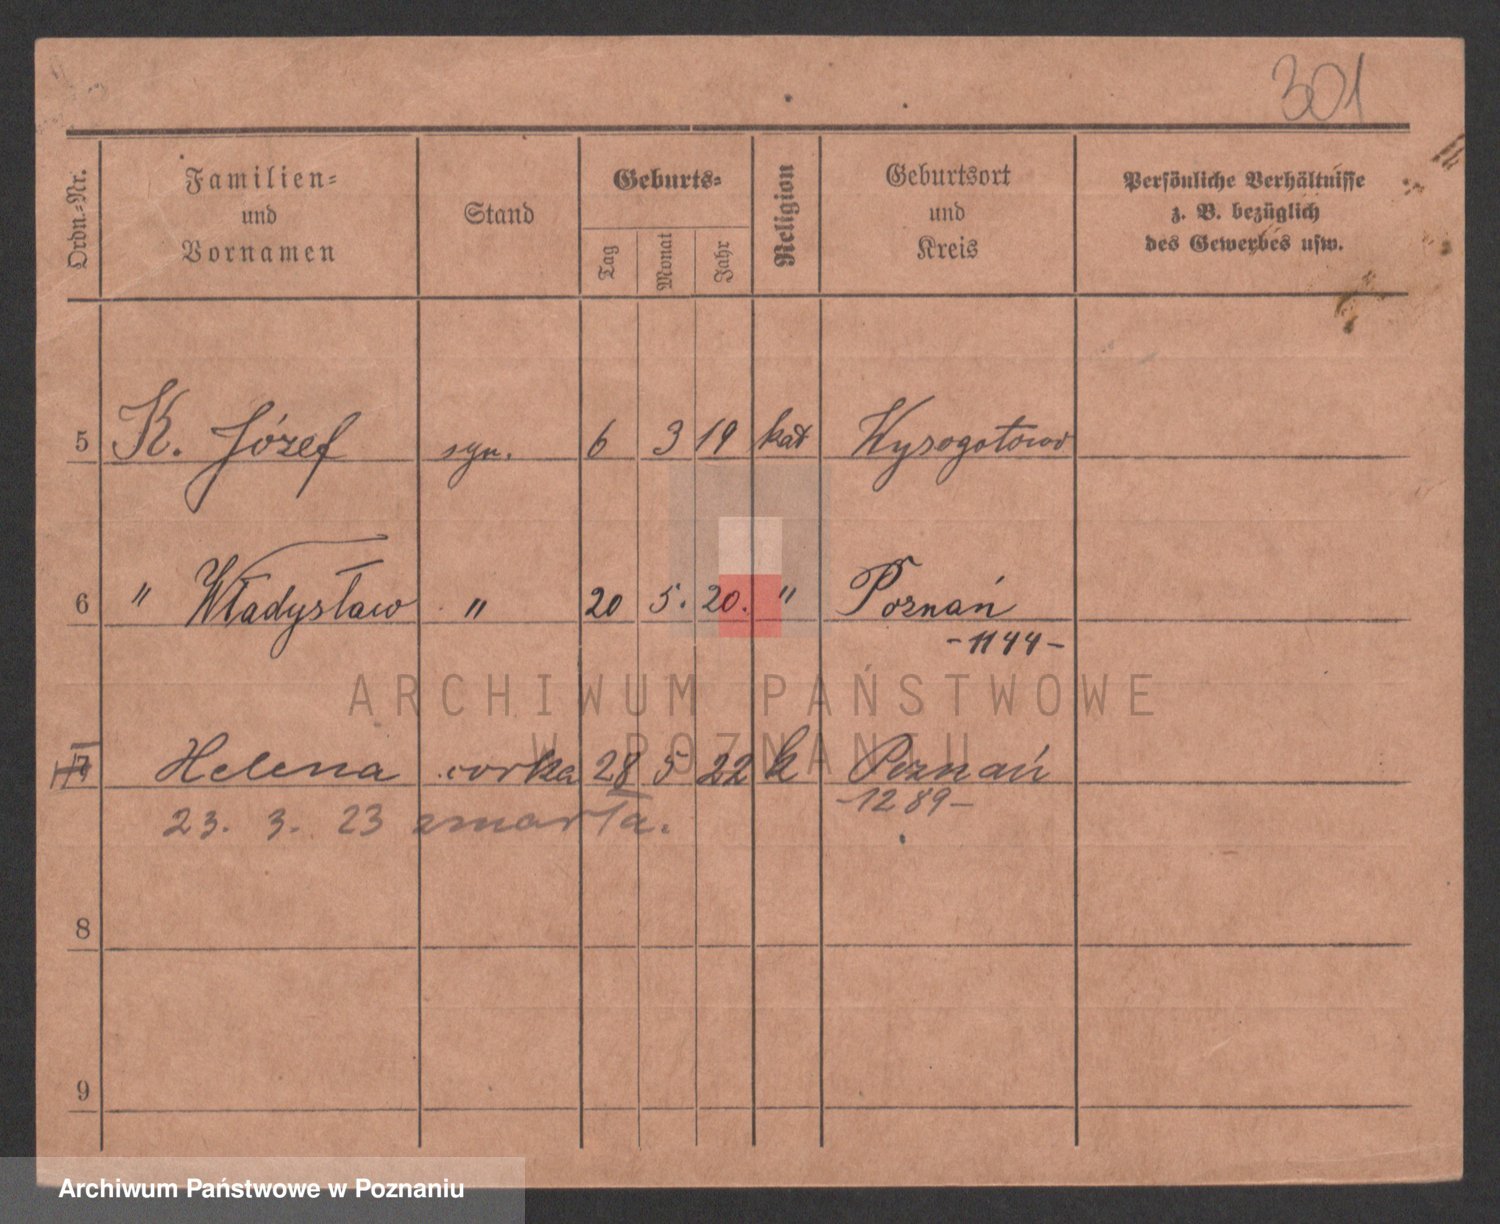 301
Ordn.-Nr.
Familien-
und
Vornamen
Stand
Geburts-
Tag
Monat
Jahr
Religion
Geburtsort
und
Kreis
Persönliche Verhältnisse
z. B. bezüglich
des Gewerbes usw.
5 K. Józef syn. 6 3 19 kat Wysogotowo
6 " Władysław " 20 5. 20. " Poznań
-1144-
7 Helena corka 28 5 22 k Poznań
23. 3. 23 zmarła. -1289-
8
9
ARCHIWUM PAŃSTWOWE
W POZNANIU
Archiwum Państwowe w Poznaniu